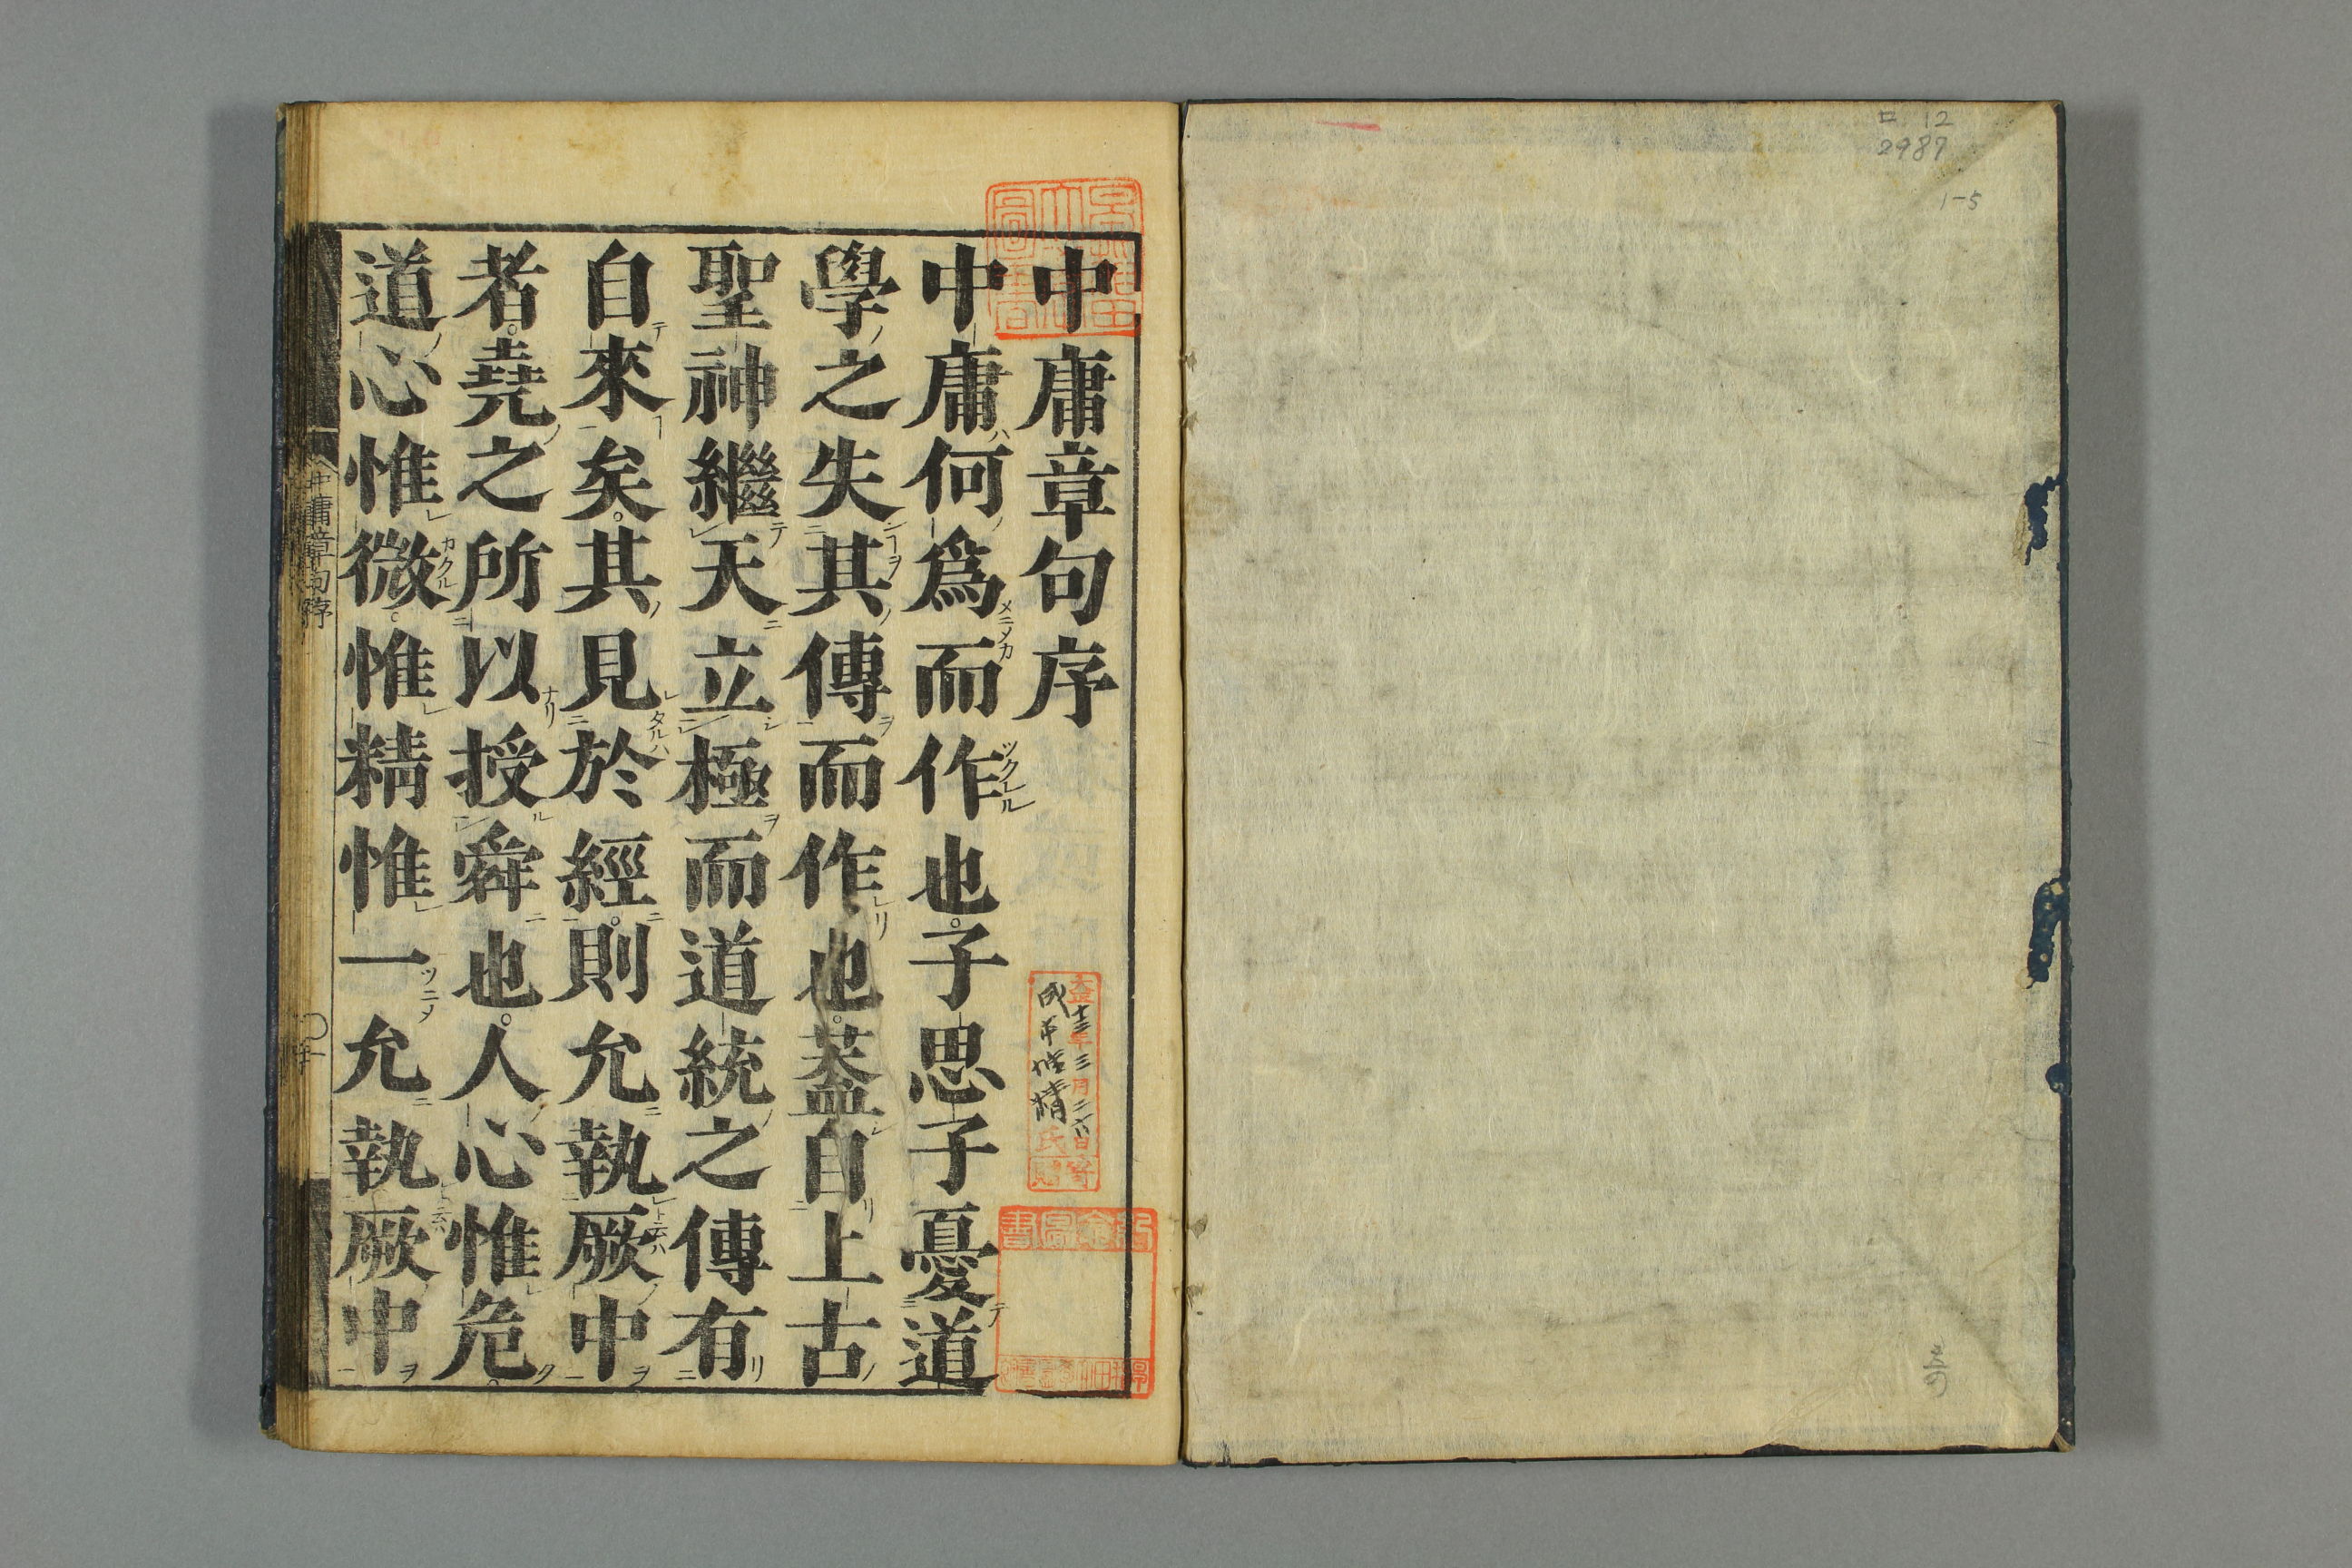 ロ 12
2987
1-5
中庸章句序
中庸何爲而作也子思子憂道
學之失其傳而作也葢自上古
聖神繼天立極而道統之傳有
自來矣其見於經則允執厥中
者堯之所以授舜也人心惟危
道心惟微惟精惟一允執厥中
中庸章句序